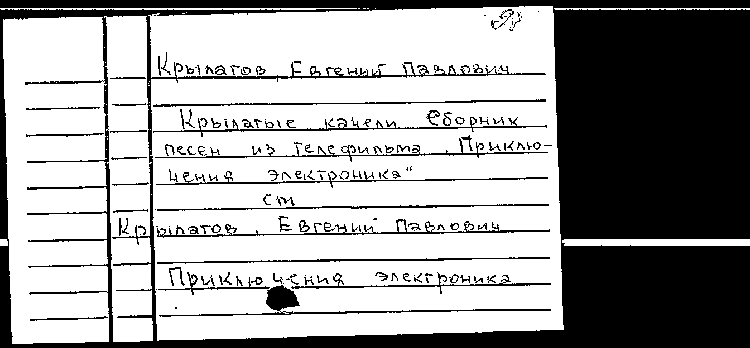 Крылатов, Евгений Павлович
Крылатые качели. Сборник
песен из телефильма „Приклю-
чения электроника"
см
Крылатов, Евгений Павлович
Приключения электроника